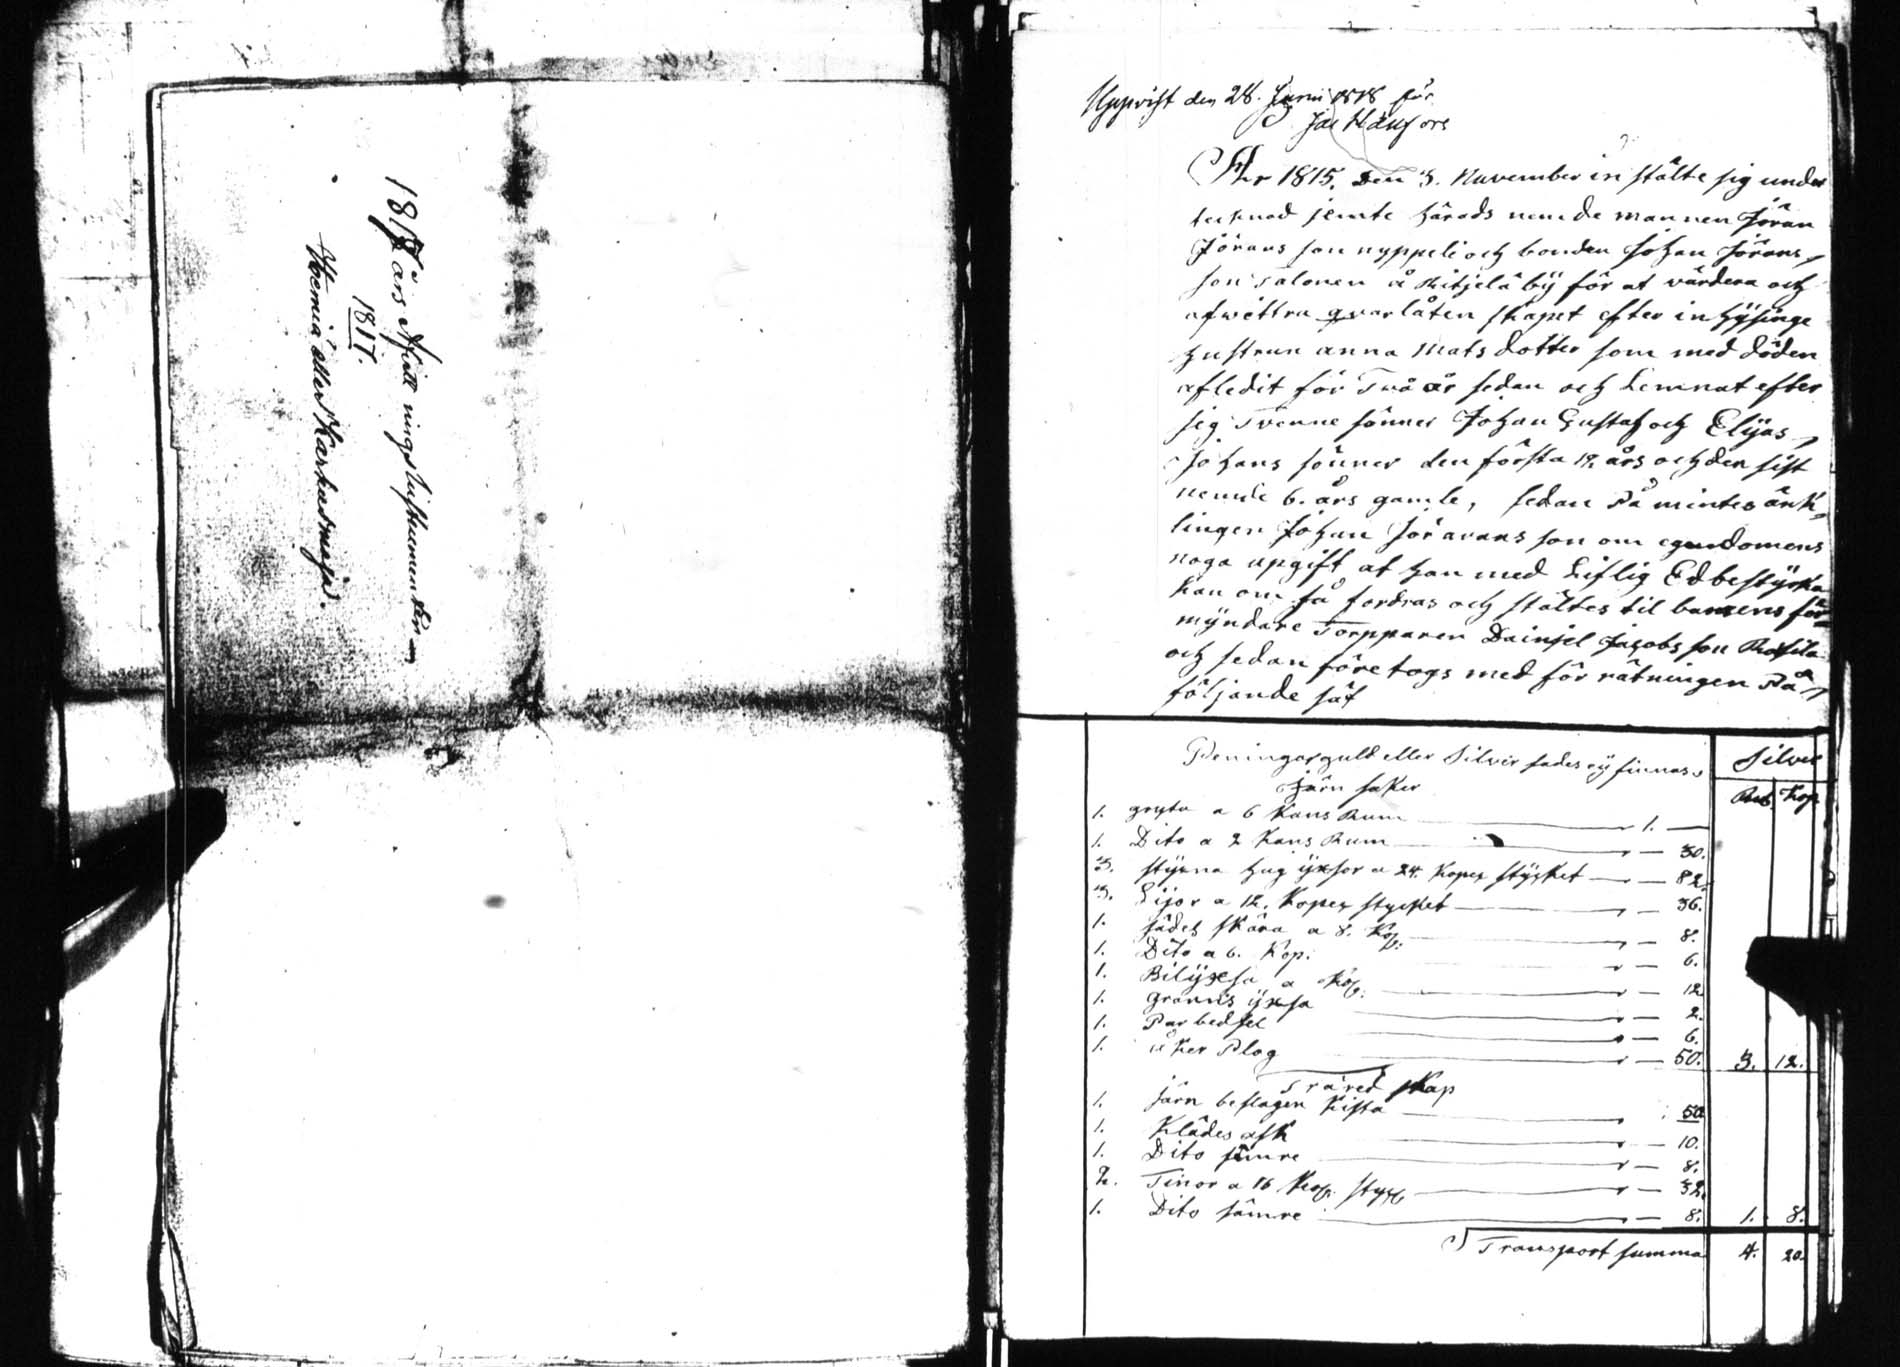 1817 års
1817.
Nemiä eller
Uppvist den 28. Junii 1818 för
Jac Hänsors
År 1815. Den 3. November instälte sig under
tecknad jemte härads nemde mannen Jöran
Jörans son nyppeli och bonden Johan Jörans
son Salonen å Kitjelä bÿ för at värdera och
afwittra qvarlåten skapet efter inhÿsinge
hustrun anna Mats dotter som med döden
afledit för Två år sedan och Lemnat efter
sig Tvenne sönner Johan Gustaf och Elÿas
Johans sönner den första 12. års och den sist
nemde 6. års gamle, sedan På mintes änk
lingen Johan Jöravans son om egendomens
noga upgift at han med Liflig Ed bestÿrka
kan om få fordras och stältes til barnens för
mÿndare Torpparen Dainjel Jacobs son
och sedan företogs med förrätningen På
följande sät
Peningar guld eller Silver sades eÿ finnas
Silver
Järn saker
Rub Kop
1. gryta a 6 Kans Rum 1. —
1. Dito a 2 Kans Rum — 30.
3. stÿkna hug ÿxsor a 24. Kopek stÿcket — 82.
3. Lijor a 12. Kopek stycket — 36.
1. sädes skära a 8. Kop: — 8.
1. Dito a 6. Kop: — 6.
1. Bilÿxsa a Kop: — 12
1. granns ÿxsa — 2.
1. Par bedsel — 6.
1. åker Plog — 50. 3. 12.
Träred skap
1. järn beslagen Kista 50
1. Klädes ask — 10.
1. Dito sämre — 8.
2. Tinor a 16 Kop. styck — 32.
1. Dito sämre — 8. 1. 8.
Transport summa 4. 20.